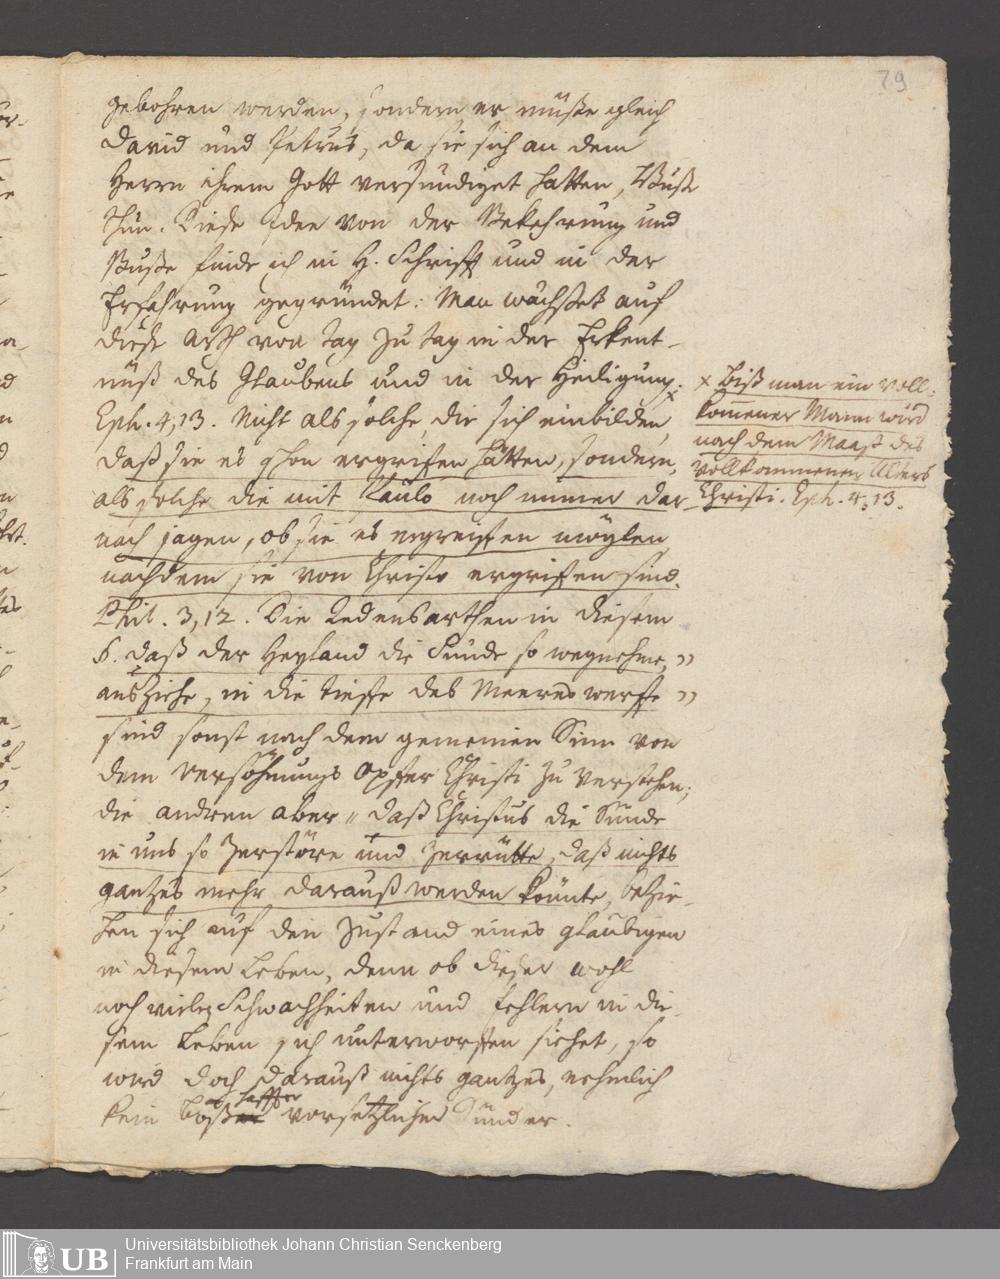 79
gebohren werden, sondern er müße gleich
David und Petrus, da sie sich an dem
Herrn ihrem Gott versündiget hatten, Buße
thun. Diese Idee von der Bekehrung und
Buße finde ich in H. Schrifft und in der
Erfahrung gegründet: Man wächset auf
diese Arth von tag zu tag in der Erkent-
nüß des Glaubens und in der Heiligung. x
Eph. 4,13. Nicht als solche die sich einbilden
daß sie es schon ergrifen hätten, sondern,
als solche die mit Paulo noch immer dar-
nach jagen, ob sie es ergreiffen mögten
nachdem sie von Christo ergriffen sind.
Phil. 3,12. Die Redensarthen in diesem
§. daß der Heyland die Sünde so wegnehme, "
ausziehe, in die tieffe des Meeres werffe "
sind sonst nach dem gemeinen Sinn von
dem Versöhnungs Opffer Christi zu verstehen;
die andren aber " daß Christus die Sünde
in uns so zerstöre und zerrütte, daß nichts
gantzes mehr darauß werden könnte, bezie-
hen sich auf den Zustand eines gläubigen
in diesem Leben, denn ob dieser wohl
noch vielen Schwachheiten und fehlern in die-
sem Leben sich unterworffen siehet, so
wird doch darauß nichts gantzes, nehmlich
kein boßhaffter vorsetzlicher Sünder.
x biß man ein voll-
kommener Mann wird
nach dem Maaß des
vollkommenen Alters
Christi. Eph. 4,13.
UB
Universitätsbibliothek Johann Christian Senckenberg
Frankfurt am Main